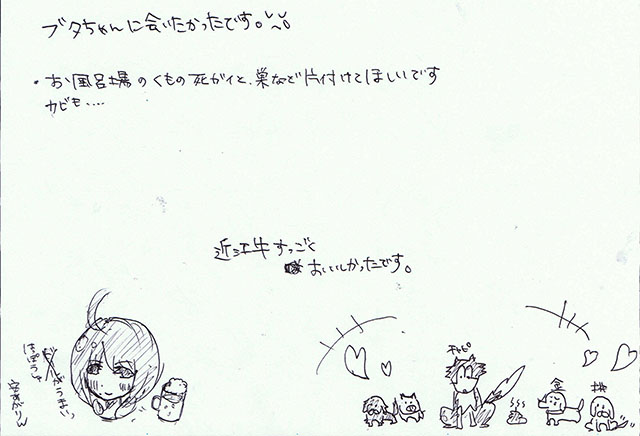 ブタちゃんに会いたかったです。
・お風呂場のくもの死ガイと、巣など片付けてほしいです
カビも....
近江牛すっごく
おいしかったです。
チャピ
金